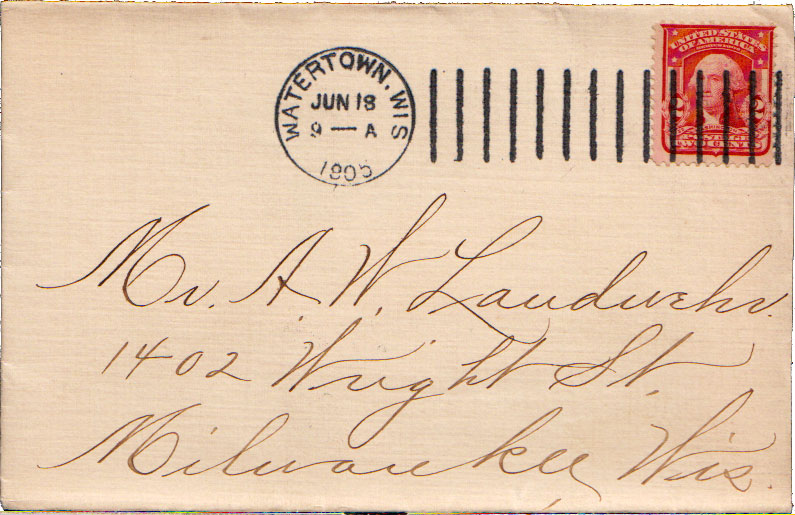 WATERTOWN, WIS
JUN 18
9 — A
1905
UNITED STATES
OF AMERICA
2 2
Mr. A. W. Landwehr.
1402 Wright St.
Milwaukee, Wis.